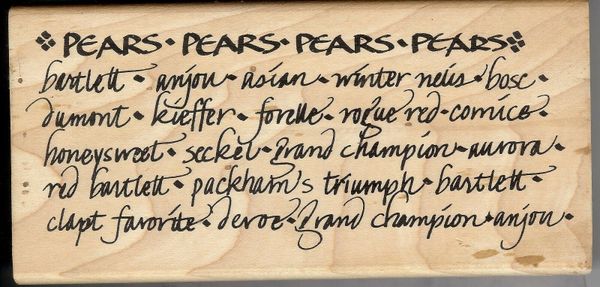 PEARS · PEARS · PEARS · PEARS
bartlett · anjou · asian · winter nelis · bosc ·
dumont · kieffer · forelle · rogue red · comice ·
honeysweet · seckel · grand champion · aurora ·
red bartlett · packham's triumph · bartlett ·
clapt favorite · devoe · grand champion · anjou ·